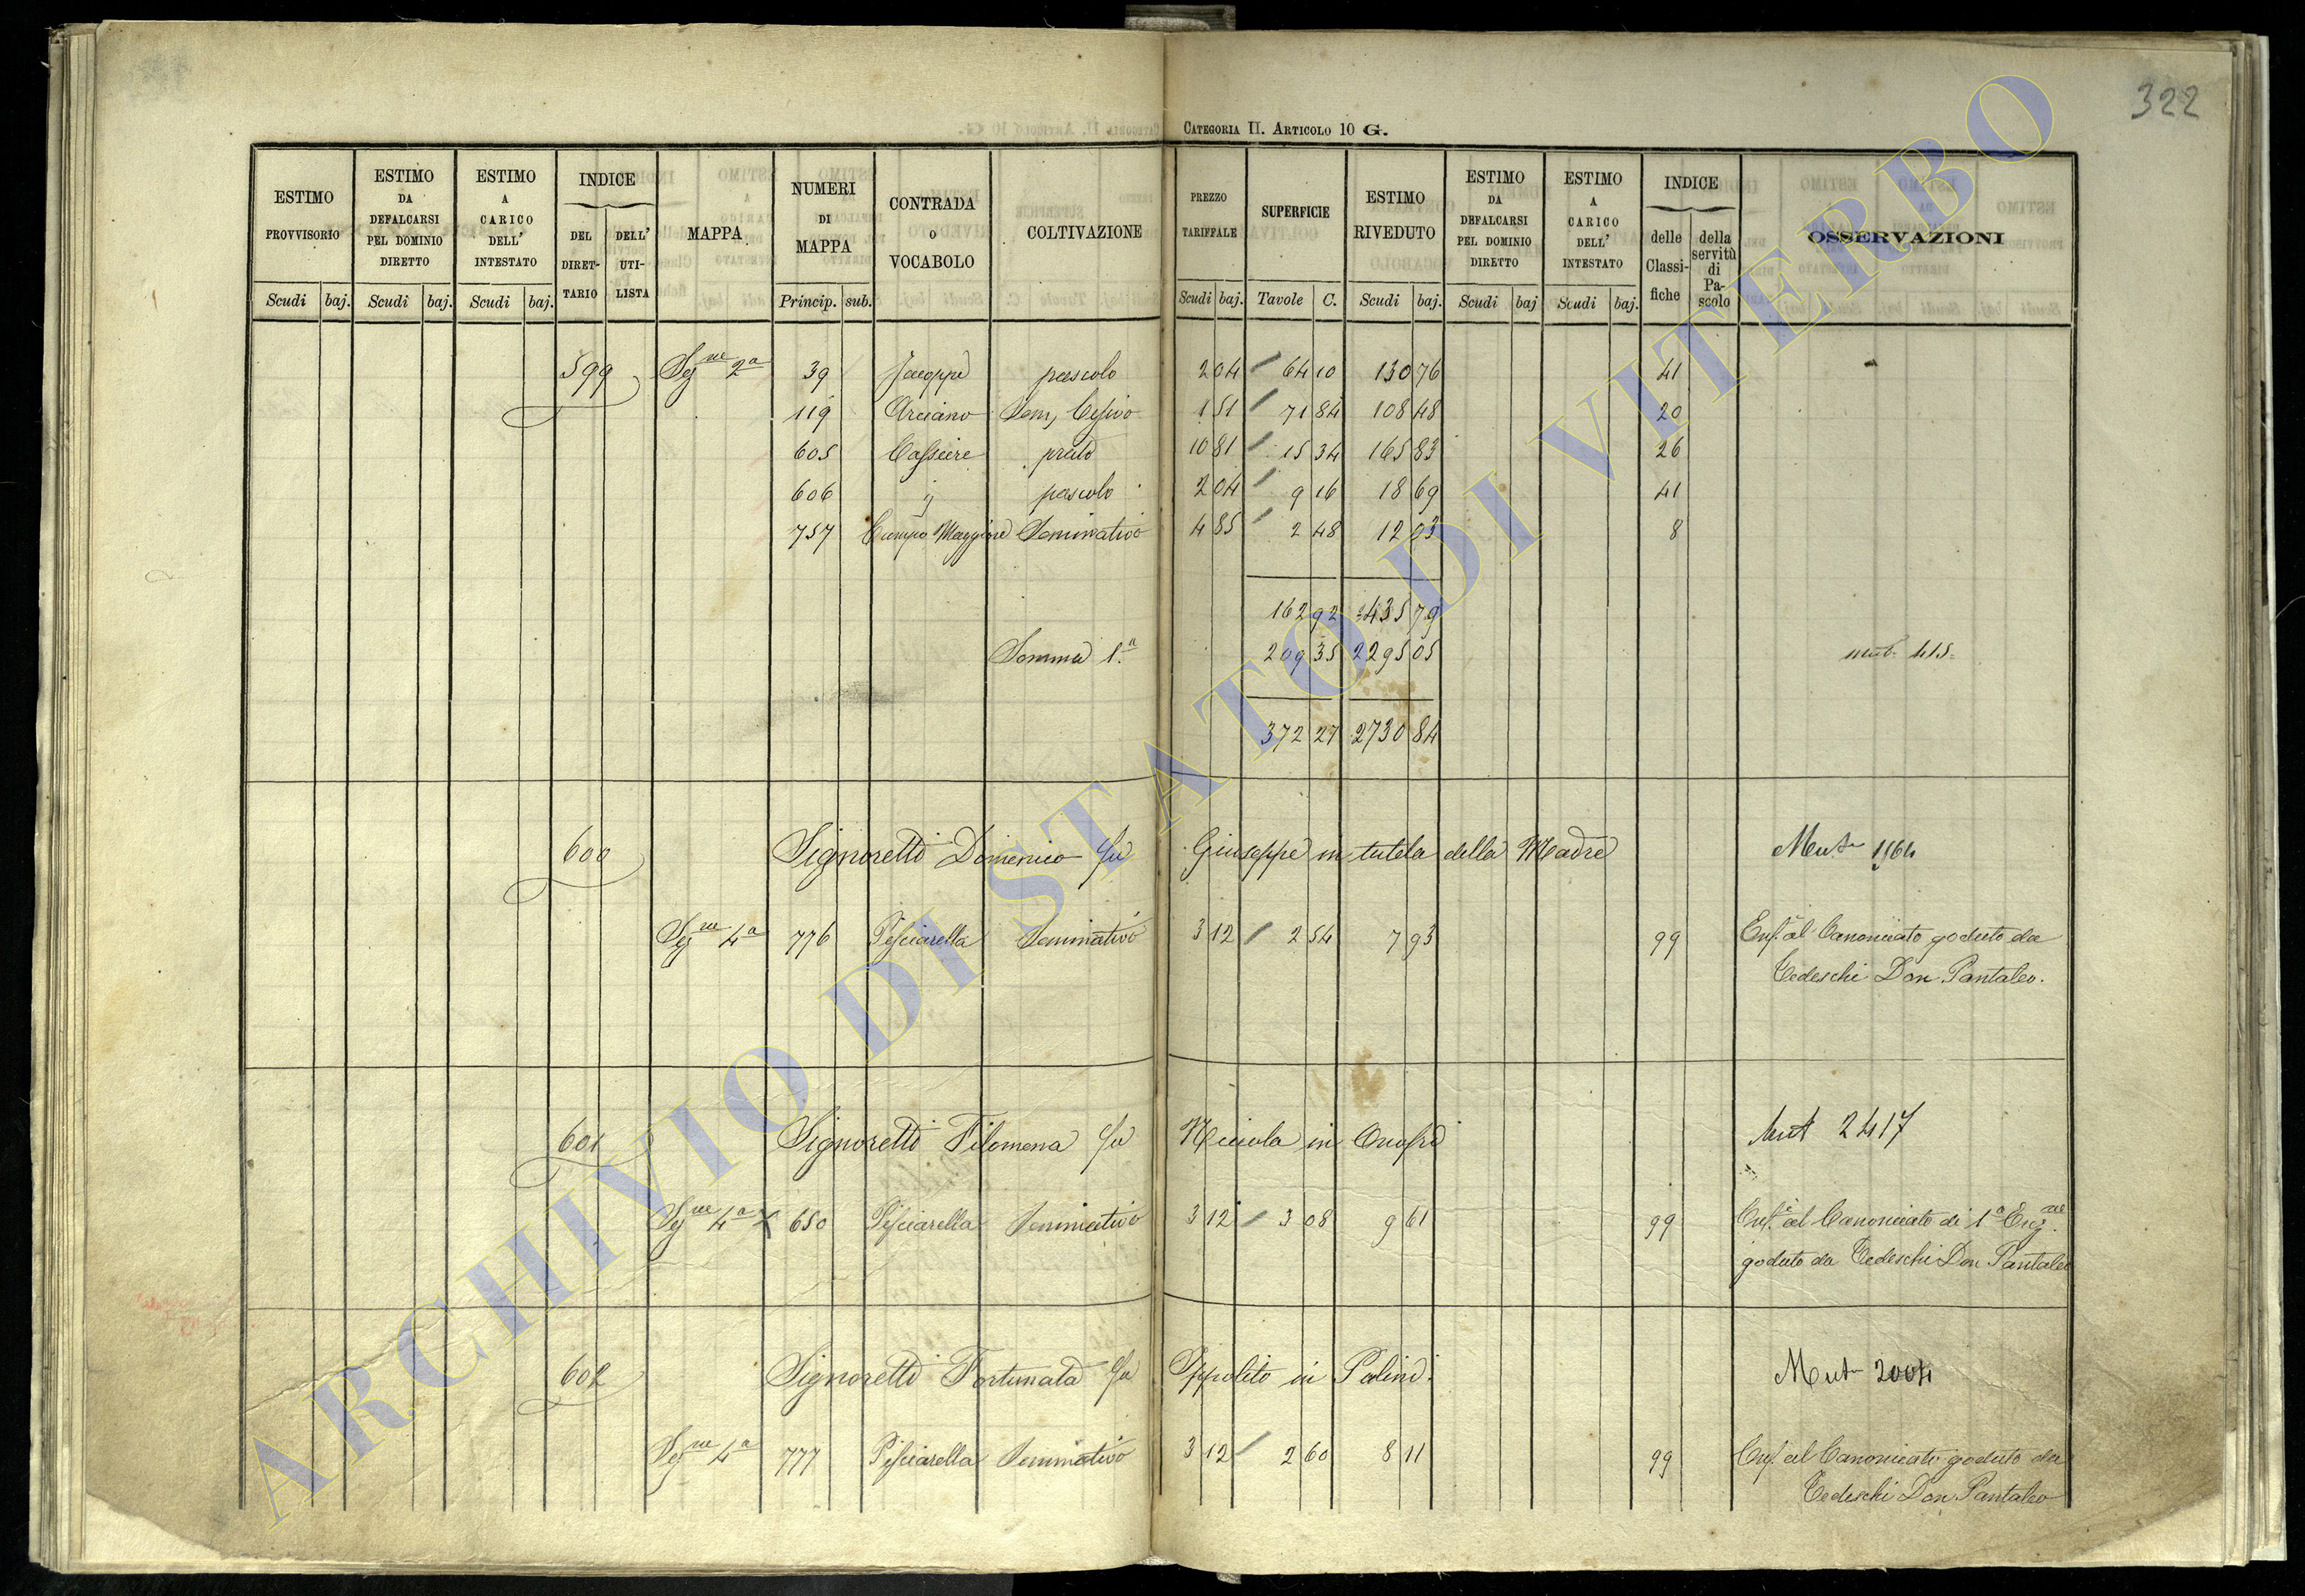 322
CATEGORIA II. ARTICOLO 10 G.
ESTIMO PROVVISORIO Scudi baj.
ESTIMO DA DEFALCARSI PEL DOMINIO DIRETTO Scudi baj.
ESTIMO A CARICO DELL' INTESTATO Scudi baj.
INDICE DEL DIRETTARIO DELL' UTILISTA
MAPPA
NUMERI DI MAPPA Princip. sub.
CONTRADA O VOCABOLO
COLTIVAZIONE
PREZZO TARIFFALE Scudi baj.
SUPERFICIE Tavole C.
ESTIMO RIVEDUTO Scudi baj.
ESTIMO DA DEFALCARSI PEL DOMINIO DIRETTO Scudi baj
ESTIMO A CARICO DELL' INTESTATO Scudi baj.
INDICE delle Classifiche della servitù di Pascolo
OSSERVAZIONI
599 Segne 2a 39 pascolo 2 04 64 10 130 76 41
119 Arciano Sem, Cesivo 1 51 71 84 108 48 20
605 Cassiere prato 10 81 15 34 165 83 26
606 ij pascolo 2 04 9 16 18 69 41
757 Campo Maggiore Seminativo 4 85 2 48 12 03 8
162 92 435 79
Somma 1.a 209 35 2295 05 mut. 415
372 27 2730 84
600 Signoretti Domenico fu Giuseppe in tutela della Madre Mut 1164
Segne 4a 776 Pisciarella Seminativo 3 12 2 54 7 93 99 Enf. al Canonicato goduto da
Tedeschi Don Pantaleo.
601 Signoretti Filomena fu Niccola in Onofri Mut 2417
Segne 4a X 650 Pisciarella Seminativo 3 12 3 08 9 61 99 Enf. al Canonicato di 1a Erezne
goduto da Tedeschi Don Pantaleo
602 Signoretti Fortunata fu Ippolito in Polini. Mut 2004
Segne 4a 777 Pisciarella Seminativo 3 12 2 60 8 11 99 Enf. al Canonicato goduto da
Tedeschi Don Pantaleo
ARCHIVIO DI STATO DI VITERBO